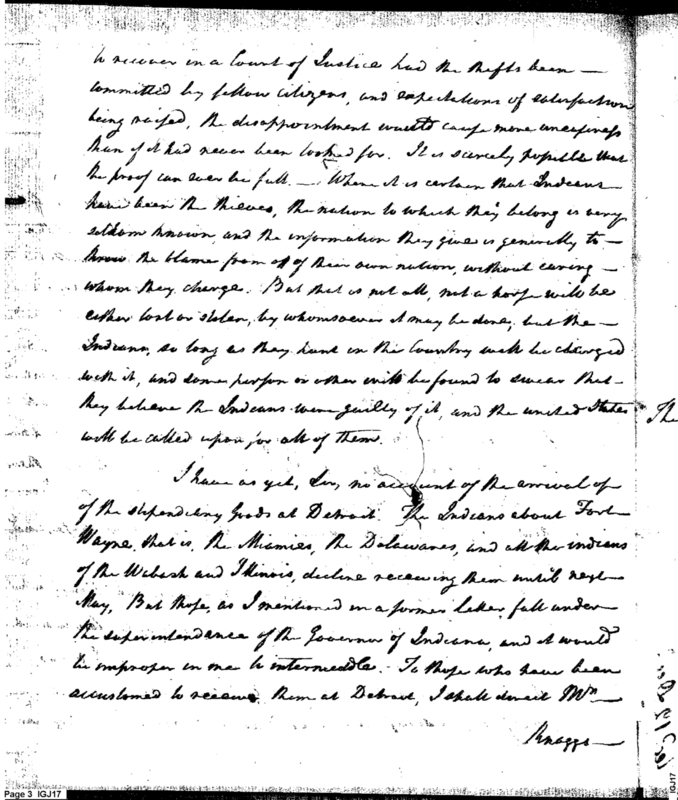 to recover in a Court of Justice had the thefts been —
committed by fellow citizens, and expectations of satisfaction
being raised, the disappointment would cause more uneasiness
than if it had never been looked for. It is scarcely possible that
the proof can ever be full. — Where it is certain that Indians
have been the thieves, the nation to which they belong is very
seldom known, and the information they give is generally to —
throw the blame from off of their own nation, without caring —
whom they charge. But that is not all, not a horse will be
either lost or stolen, by whomsoever it may be done, but the —
Indians, so long as they hunt in the Country will be charged
with it, and some person or other will be found to swear that —
they believe the Indians were guilty of it, and the united States
will be called upon for all of them.
I have as yet, Sir, no account of the arrival of
of the stipendiary Goods at Detroit. The Indians about Fort
Wayne, that is, the Miamies, the Dalawares, and all the indians
of the Wabash and Illinois, decline receiving them until next
May, But those, as I mentioned in a former letter, fall under
the superintendance of the Governor of Indiana, and it would
be improper in me to intermeddle. To those who have been
accustomed to receive them at Detroit, I shall direct Mr. —
Knaggs —
The
Page 3 IGJ17
IGJ17